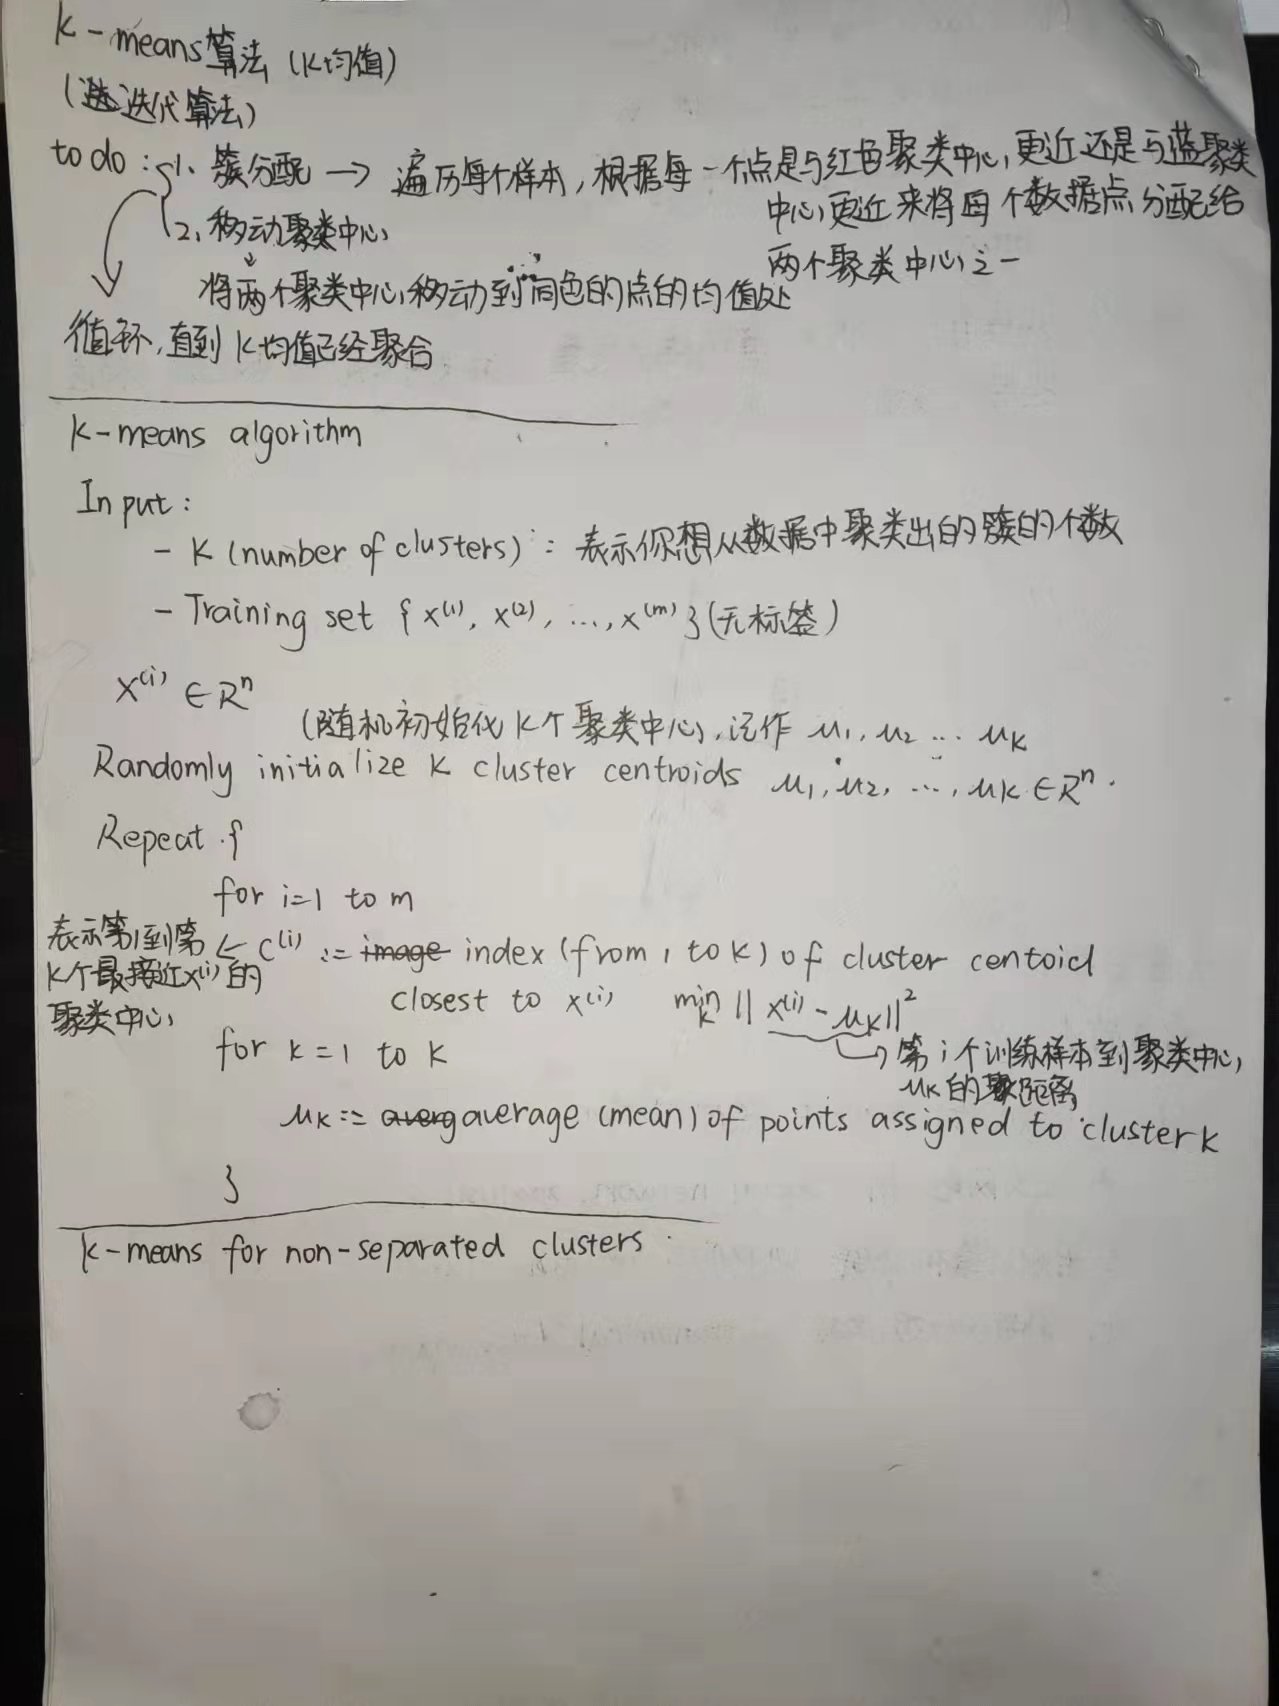 K-means算法 (K均值)
(迭代算法)
to do : 1、簇分配 → 遍历每个样本，根据每一个点是与红色聚类中心，更近还是与蓝聚类
中心更近来将每个数据点分配给
两个聚类中心之一
2、移动聚类中心
将两个聚类中心移动到同色的点的均值处
循环，直到K均值已经聚合
K-means algorithm
Input :
- K (number of clusters) : 表示你想从数据中聚类出的簇的个数
- Training set { x⁽¹⁾, x⁽²⁾, ..., x⁽ᵐ⁾ } (无标签)
x⁽ⁱ⁾ ∈ Rⁿ
(随机初始化K个聚类中心)，记作 μ₁, μ₂ ... μK
Randomly initialize K cluster centroids μ₁, μ₂, ..., μK ∈ Rⁿ.
Repeat {
for i=1 to m
C⁽ⁱ⁾ := image index (from 1 to K) of cluster centoid
closest to x⁽ⁱ⁾ min k || x⁽ⁱ⁾ - μK ||²
表示第1到第
K个最接近x⁽ⁱ⁾的
聚类中心
→ 第i个训练样本到聚类中心,
μK的距离
for k = 1 to K
μK := averg average (mean) of points assigned to cluster k
}
K-means for non-separated clusters